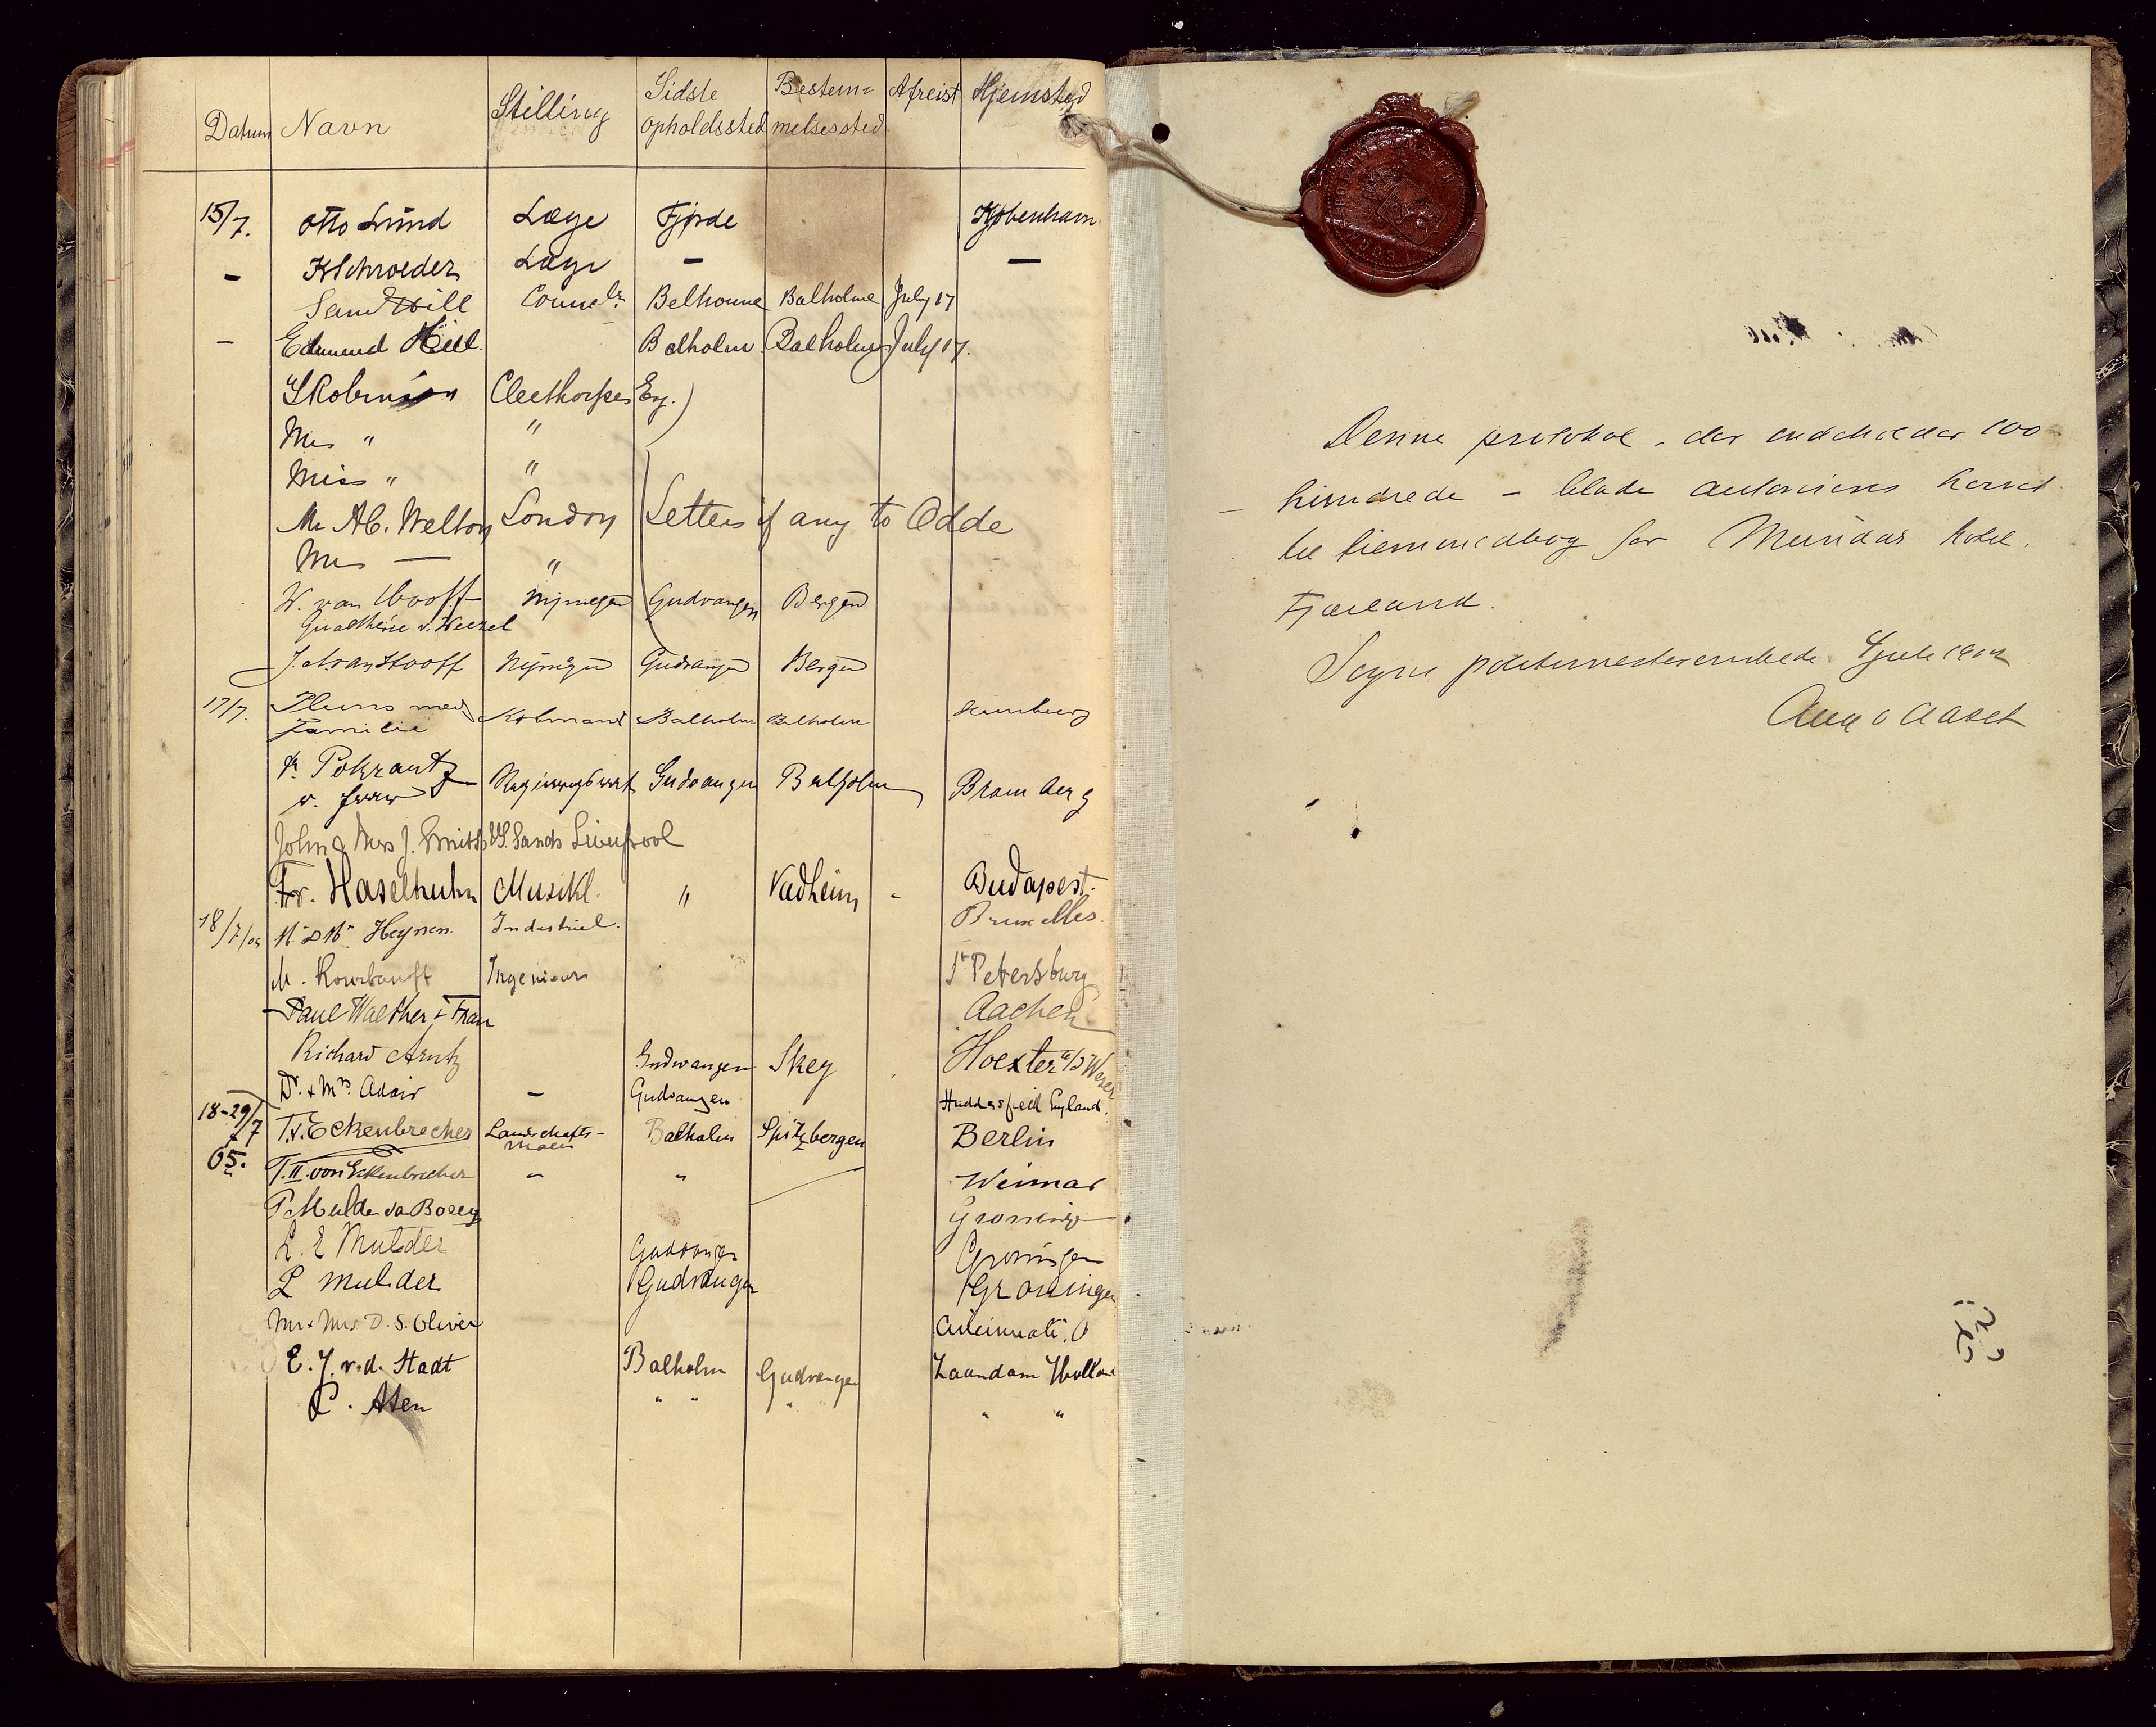 Datum Navn Stilling Sidste opholdssted Bestem= melsessted Afreist Hjemsted
15/7. Otto Lund Læge Fjørde Kjøbenhavn.
- K Schroeder Læge - -
Sam Hill Balholme July 17
- Edmund Hill. Balholm. Balholm July 17.
Robinson Cleethorpes Eng.)
Mrs " "
Miss " "
Mr A C. Welton London Letters if any to Odde
Mrs — "
W. van Hooff Nijmegen Gudvangen Bergen
J. A. van Hooff Nijmegen Gudvangen Bergen
17/7. Plens med Kobmand Balholm Balholm Hamburg
Familie
Pokrantz Gudvangen Balholm Bromberg
John & Mrs J. Smith Sands Liverpool
Fr. Haselhuhn Musikl. " Vadheim - Budapest.
18/7/05 Mr & Me Heynen. Industriel. Bruxelles.
M. Ingenieur St Petersburg
Paul Walther & Frau Aachen
Richard Arntz Gudvangen Skey Hoexter a/d Weser
Dr. & Mrs Adair - Gudvangen Huddersfield England.
18-29/7 T.v. Eckenbrecher Landschafts- Balholm Spitzbergen Berlin
maler
05. T. II. von Eckenbrecher " " Weimar
P Mulder va Boerg Groningen
L. E Mulder Gudvangen Groningen
L Mulder Gudvangen Groningen
Mr & Mrs D. S. Oliver Cincinnati, O
E. J. v. d. Stadt Balholm Gudvangen Zaandam Holland
C. Aten " " " " "
Denne protokol, der indeholder 100
hundrede - blade autoriseres herved
til fremmedbog for Mundals hotel.
Fjærland.
Sogns politimesterembede 4 juli 1902